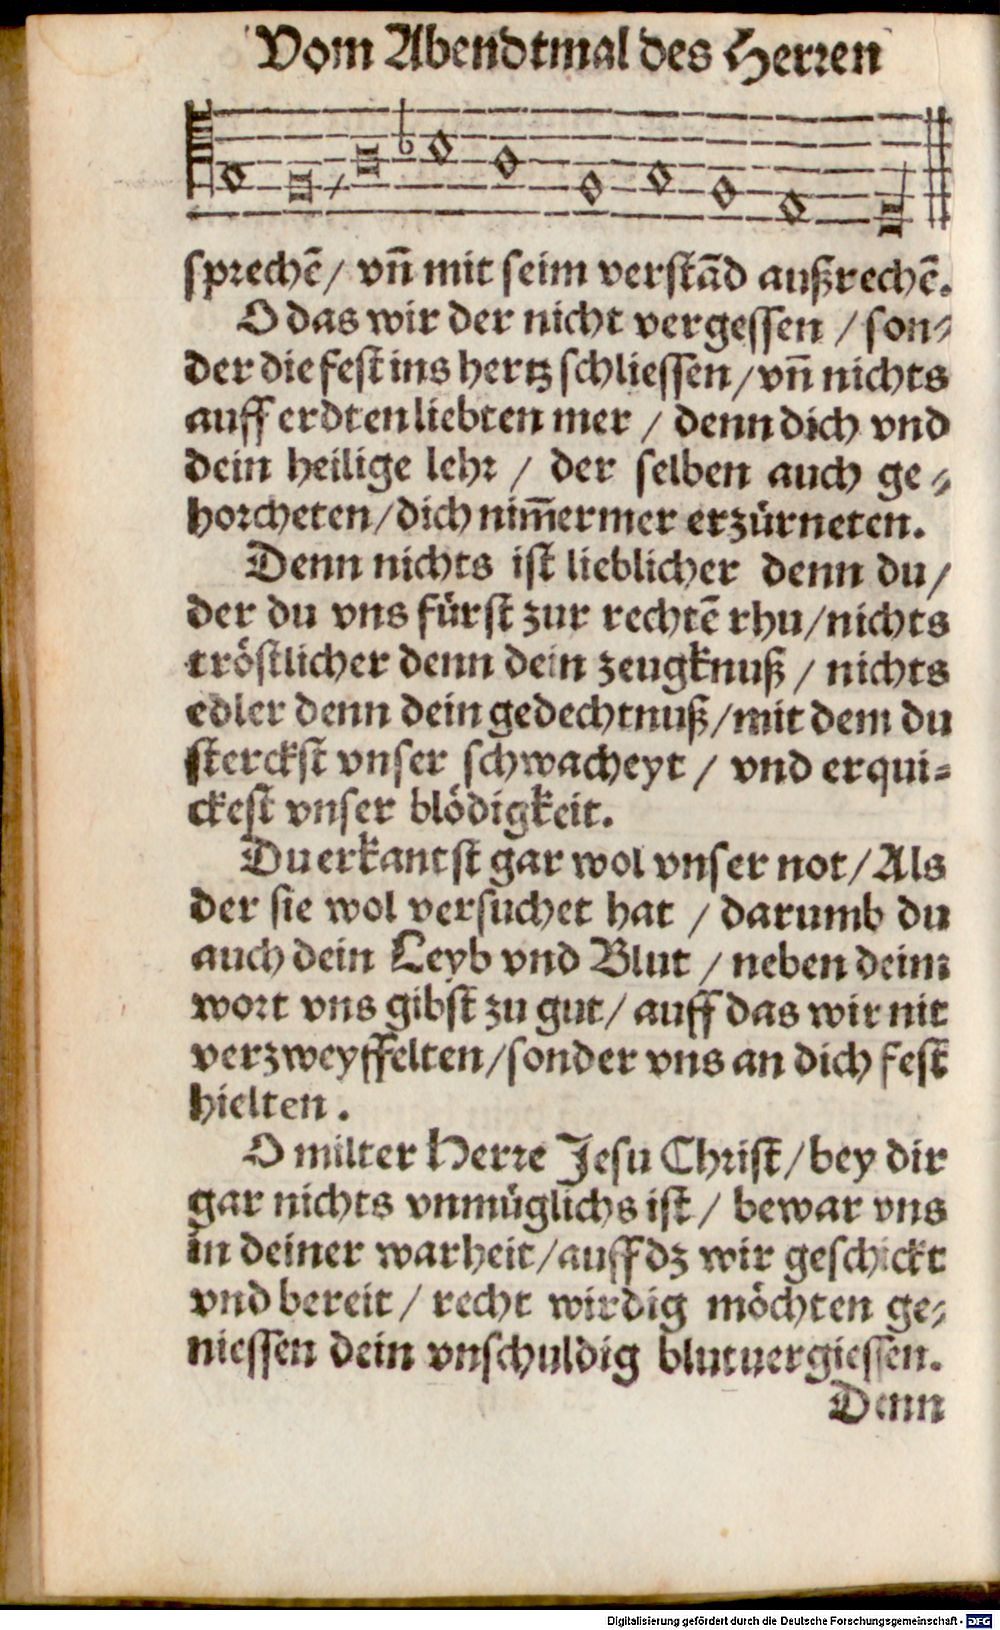 Vom Abendtmal des Herren
sprechē/ vn̄ mit seim verstād außrechē.
O das wir der nicht vergessen / son-
der die fest ins hertz schliessen/vn̄ nichts
auff erdten liebten mer / denn dich vnd
dein heilige lehr / der selben auch ge-
horcheten/dich nim̄ermer erzürneten.
Denn nichts ist lieblicher denn du/
der du vns fürst zur rechtē rhu/nichts
tröstlicher denn dein zeugknuß / nichts
edler denn dein gedechtnuß/mit dem du
sterckst vnser schwacheyt / vnd erqui-
ckest vnser blödigkeit.
Du erkantst gar wol vnser not/Als
der sie wol versuchet hat / darumb du
auch dein Leyb vnd Blut / neben deim
wort vns gibst zu gut/ auff das wir nit
verzweyffelten/sonder vns an dich fest
hielten.
O milter Herre Jesu Christ/bey dir
gar nichts vnmüglichs ist / bewar vns
in deiner warheit/auff dz wir geschickt
vnd bereit / recht wirdig möchten ge-
niessen dein vnschuldig blutuergiessen.
Denn
Digitalisierung gefördert durch die Deutsche Forschungsgemeinschaft - DFG